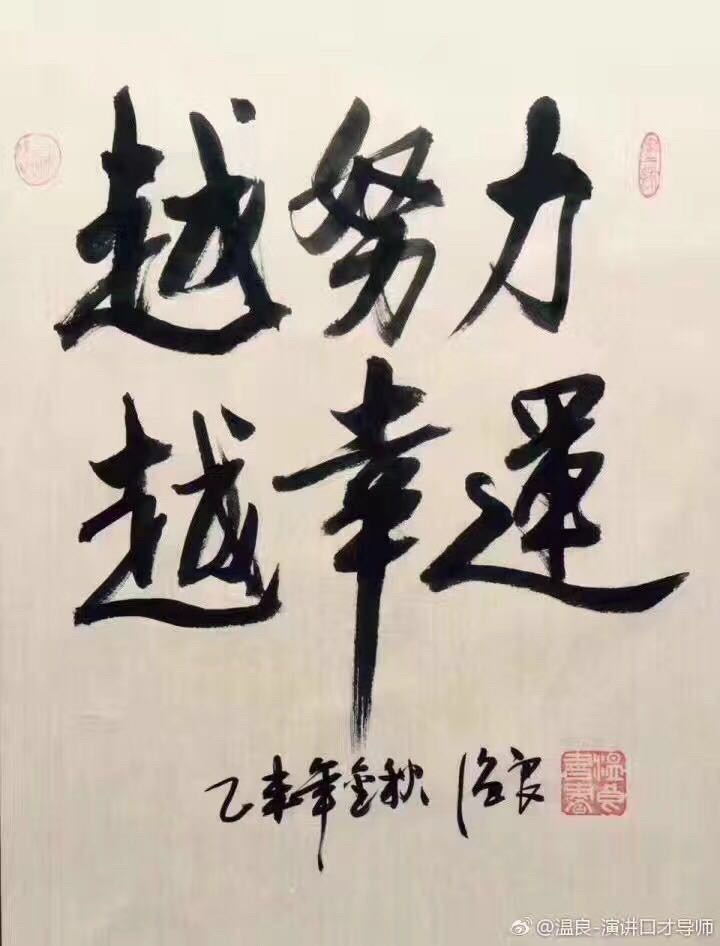 越努力
越幸運
乙未年金秋 温良
温良書畫
@温良-演讲口才导师